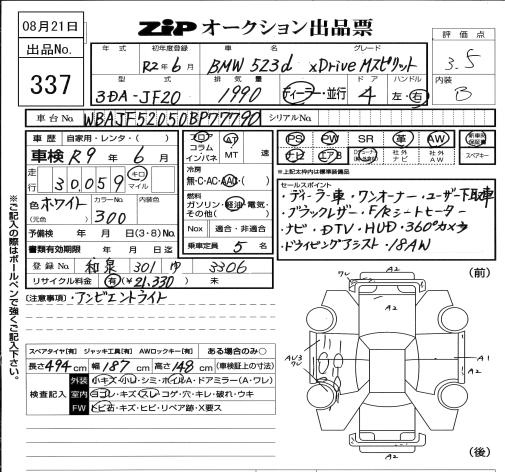 08月21日
ZIP オークション出品票
出品No.
337
評価点
3.5
内装
B
年式 初年度登録 車名 グレード
R2年6月 BMW 523d xDrive Mスピリット
型式 排気量 ドア ハンドル
3DA-JF20 1990 ディーラー・並行 4 左・右
車台No. WBAJF52050BP77790 シリアルNo.
車歴 自家用・レンタ・( )
車検 R9年6月
走行 30059 キロ マイル
色 ホワイト カラーNo. 300 内装色
(元色)
予備検 R 年 月 (3・8) No.
書類有効期限 年 月 日迄
登録No. 和泉 301 ゆ 3306
リサイクル料金 有 ¥21,330 未
フロア コラム インパネ
AT MT 速
冷房
無・C・AC・AAC・( )
燃料
ガソリン・軽油・電気・その他( )
Nox 適合・非適合
乗車定員 5 名
PS PW SR 革 AW 新車時保証書
ナビ エアB 社外ナビ 社外AW スペアキー
※上記太枠内は標準装備品
セールスポイント
・ディーラー車・ワンオーナー・ユーザー下取車
・ブラックレザー・F/Rシートヒーター
・ナビ・DTV・HUD・360°カメラ
・ドライビングアシスト・18AW
(注意事項)・アンビエントライト
※ご記入の際はボールペンで強くご記入下さい。
スペアタイヤ[有] ジャッキ工具[有] AWロックキー[有] ある場合のみ○
長さ494cm 幅187cm 高さ148cm (車検証上の寸法)
検査記入
外装 小キズ・小凹・シミ・ホイルA・ドアミラー(A・ワレ)
室内 ヨゴレ・キズ・スレ・コゲ・穴・キレ・破れ・ウキ
FW トビ石・キズ・ヒビ・リペア跡・X要ス
(前)
A2
ワレ
A2
AU3
ワレ
A1
A2
(後)